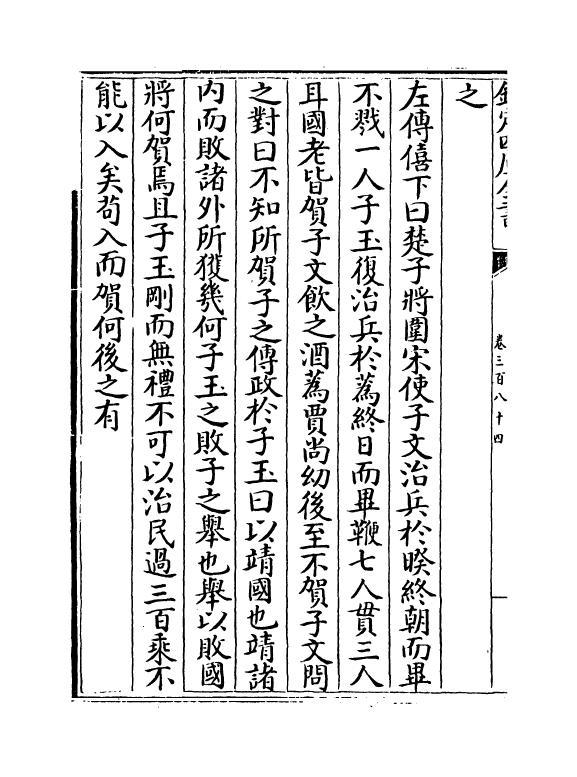 卷三百八十四
之
左傳僖下曰楚子將圍宋使子文治兵於睽終朝而畢
不戮一人子玉復治兵於蒍終日而畢鞭七人貫三人
耳國老皆賀子文飲之酒蒍賈尚幼後至不賀子文問
之對曰不知所賀子之傳政於子玉曰以靖國也靖諸
内而敗諸外所獲幾何子玉之敗子之舉也舉以敗國
將何賀焉且子玉剛而無禮不可以治民過三百乘不
能以入矣苟入而賀何後之有